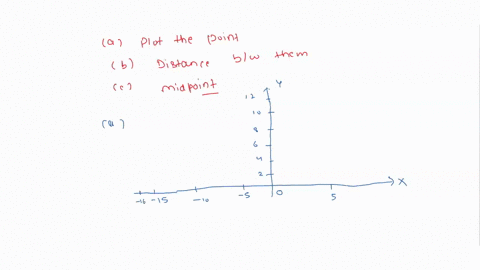 (a) Plot the point
(b) Distance b/w them
(c) midpoint
(a)
Y
12
10
8
6
4
2
-15 -10 -5 0 5 X